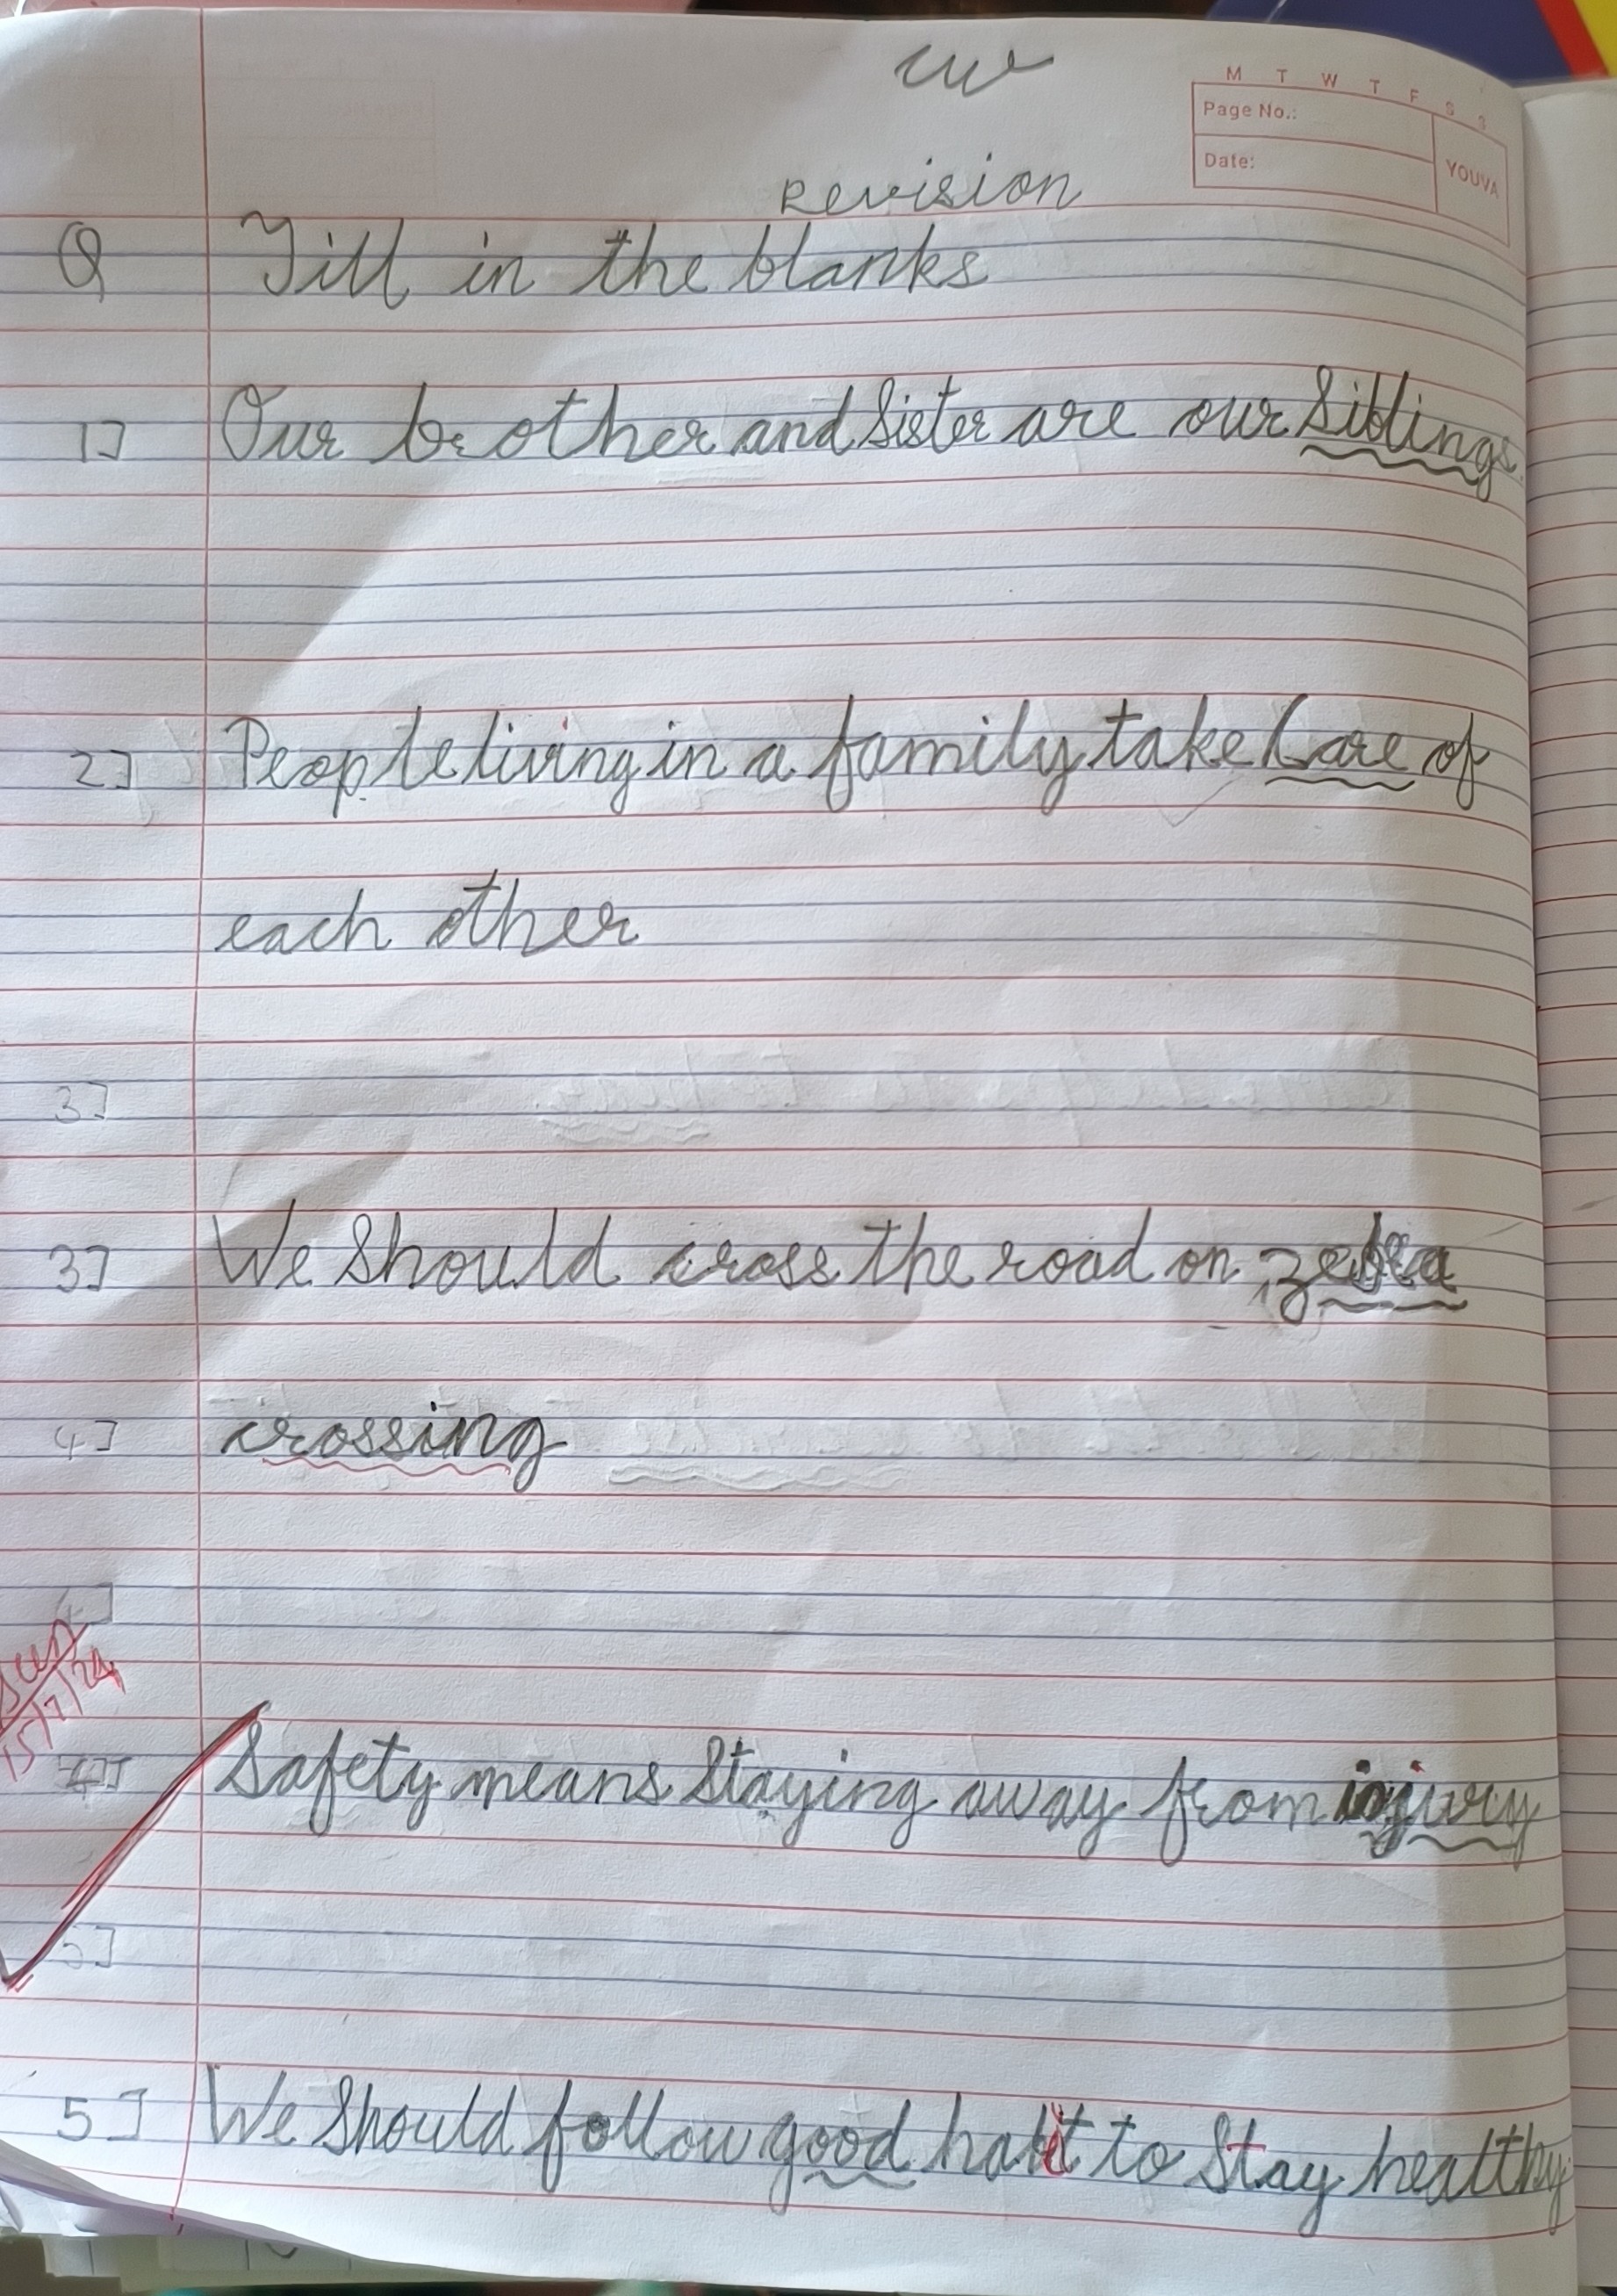 cw
M T W T F S S
Page No.:
Date:
YOUVA
Revision
Q Fill in the blanks
1] Our brother and Sister are our Siblings.
2] People living in a family take Care of
each other
3]
3] We Should cross the road on zebra
4] crossing
15/7/24
4] Safety means Staying away from injury
5]
5] We Should follow good habit to Stay healthy